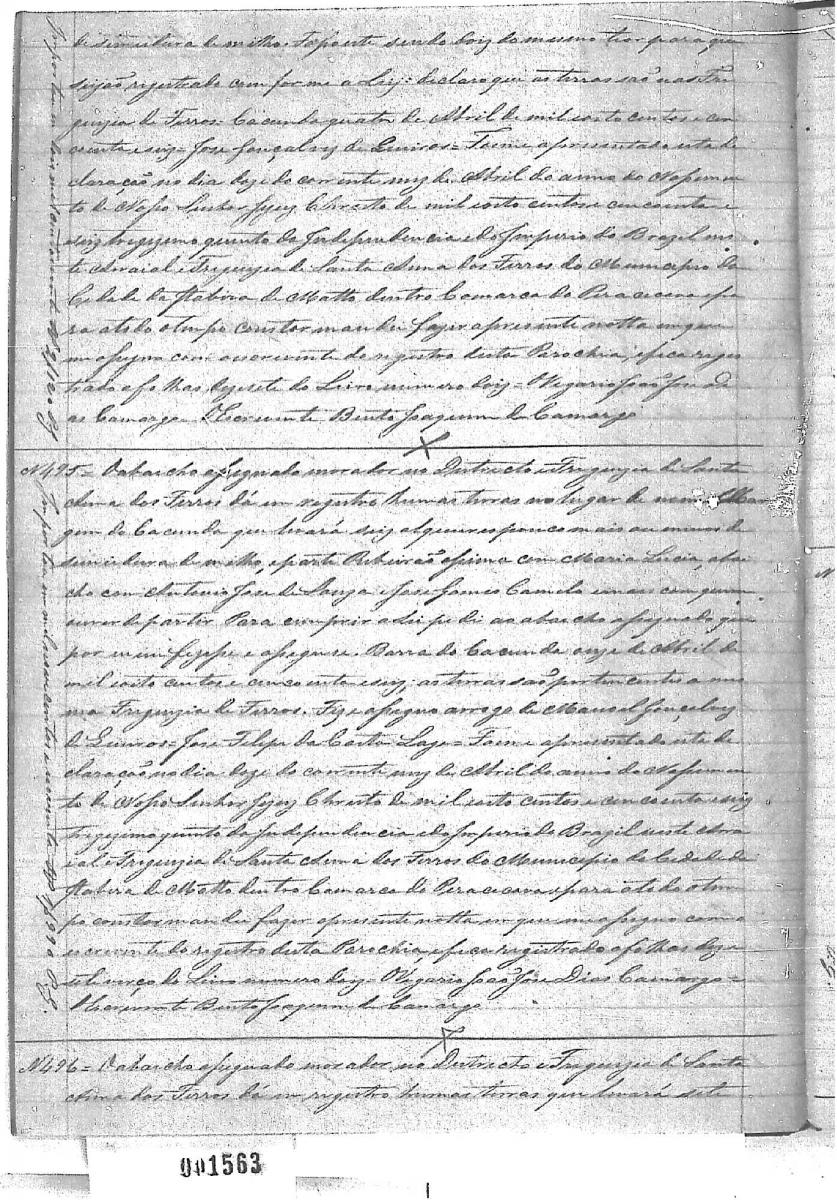 de simiadura de milho. Faço este sendo doiz do mesmo tior para que
sejão rigistrado comforme a Ley: declaro que as terras são nas Fri
guizia de Ferros. Cacunda quatro de Abril de mil oito centos e cin
coenta e seiz = Jose Gonçalvez de Queiros = Foime aprezentado esta de
claração no dia doze do corrente mez de Abril do anno do Nascimen
to de Nosso Senhor Jezuz Christo de mil oito centos e cincoenta e
seiz trigezimo quinto da Independencia e do Imperio do Brazil nes
te Arraial e Friguizia de Santa Anna dos Ferros do Municipio da
Cidade da Itabira de Matto dentro Comarca do Peracicava e pa
ra a todo o tempo constar mandei fazer a prezente notta em que
me assigno com o escrivente do registro desta Parochia, e fica regis
trado a folhas dezesete do Livro numero doiz = O Vigario João Jose Di
as Camargo O Escrivente Bento Joaquim de Camargo
N495 = O abaicho assignado morador no Destricto e Friguizia de Santa
Anna dos Ferros dá em registro humas terras no lugar de nome Mar
gem do Cacunda que levará seiz alqueires pouco mais ou menos de
simiadura de milho, e parte Ribeirão assima com Maria Lucia, abai
cho com Antonio Jose de Souza e Jose Gomes Camelo e mais com quem
ouver de partir Para cumprir a Lei pedi ao abaicho assignado que
por mim fizesse e assignase. Barra do Cacunda onze de Abril de
mil oito centos e cincoenta e seiz; as terras são pertencentes a mes
ma Friguizia de Ferros. Fiz e assigno arrogo de Manoel Gonçalvez
de Queiros = Jose Felipe da Costa Lage = Foime aprezentado esta de
claração no dia doze do corrente mez de Abril do anno do Nascimen
to de Nosso Senhor Jezuz Christo de mil oito centos e cincoenta e seiz
trigezimo quinto da Independencia e do Imperio do Brazil neste Arra
ial e Friguizia de Santa Anna dos Ferros do Municipio da Cidade da
Itabira de Matto dentro Comarca do Peracicava e para a todo o tem
po constar mandei fazer a prezente notta em que me assigno com o
escrivente do registro desta Parochia e fica registrado a folhas deze
sete verço do Livro numero doiz = O Vigario João Jose Dias Camargo =
O Escrivente Bento Joaquim de Camargo
N496 = O abaicho assignado morador no Destricto e Friguizia de Santa
Anna dos Ferros dá em registro humas terras que levará sete
001563